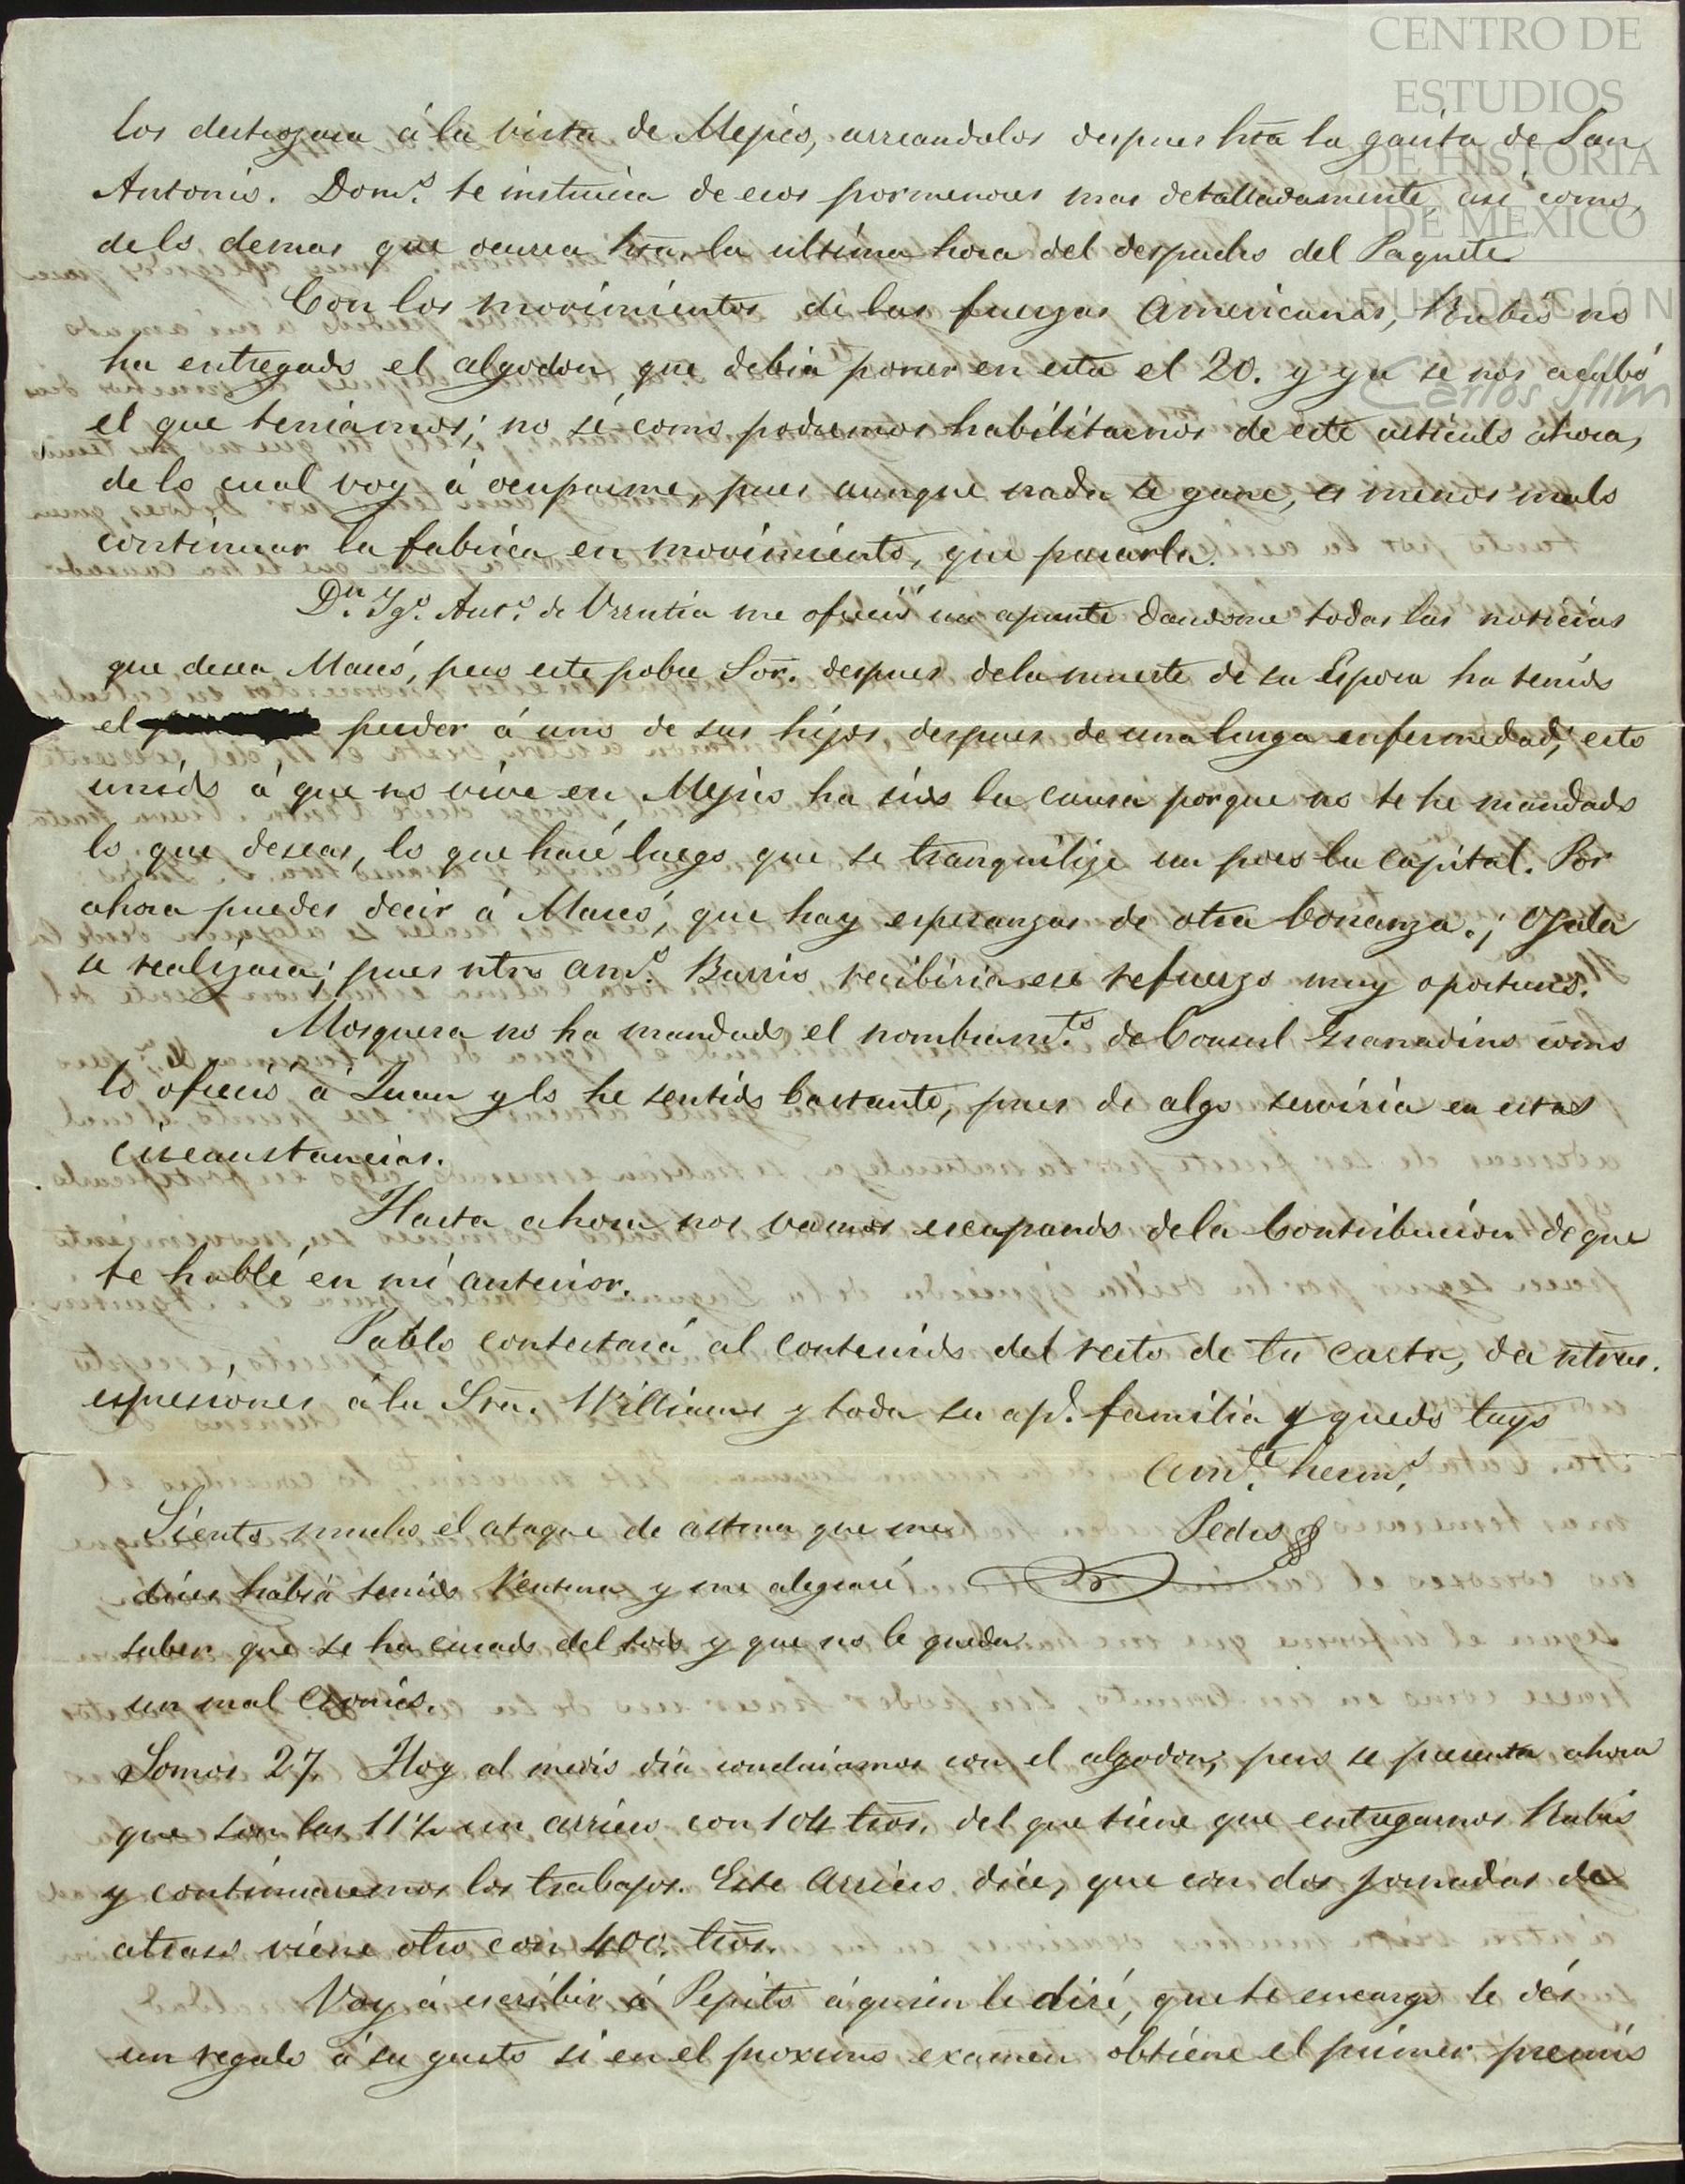 CENTRO DE
ESTUDIOS
DE HISTORIA
DE MEXICO
FUNDACIÓN
Carlos Slim
los destrozara á la vista de Mejico, arreandolos despues hta la garita de San
Antonio. Domo. te instruira de esos pormenores mas detalladamente, asi como,
de lo demas que ocurra hta. la ultima hora del despacho del Paquete
Con los movimientos de las fuerzas Americanas, Rubio no
ha entregado el algodon que debia poner en esta el 20. y ya se nos acabó
el que teniamos; no sé como podremos habilitarnos de este articulo ahora,
de lo cual voy á ocuparme, pues aunque nada se gane, es menos malo
continuar la fabrica en movimiento, que pararla.
Dn. Igo. Anto. de Urrutia me ofreció un apunte dandome todas las noticias
que desea Maceó, pero este pobre Sor. despues de la muerte de su Esposa ha tenido
el perder á uno de sus hijos despues de una larga enfermedad; esto
unido á que no vive en Mejico ha sido la causa porque no te he mandado
lo que deseas, lo que haré luego que se tranquilize un poco la capital. Por
ahora puedes decir á Maceó, que hay esperanzas de otra bonanza.; Ojala
se realizara; pues ntro amo. Barrio recibiria ese refuerzo muy oportuno.
Mosquera no ha mandado el nombramto. de Consul Granadino como
lo ofreció á Juan y lo he sentido bastante, pues de algo serviria en estas
circunstancias.
Hasta ahora nos vamos escapando de la Contribucion de que
te hablé en mi anterior.
Pablo contestará al contenido del resto de tu carta, da ntras.
espresiones á la Sra. Williams y toda su apd. familia y quedo tuyo
amte. hermo.
Pedro
Siento mucho el ataque de astma que me
dices habia tenido Ventura y me alegraré
saber que se ha curado del todo y que no le queda
un mal cronico.
Somos 27. Hoy al medio dia concluiamos con el algodon; pero se presenta ahora
que son las 11½ un arriero con 104 tros. del que tiene que entregarnos Rubio
y continuaremos los trabajos. Este arriero dice, que con dos jornadas de
atraso viene otro con 400. tros.
Voy á escribir á Pepito á quien le diré, que te encargo le dés
un regalo á su gusto si en el proximo examen obtiene el primer premio